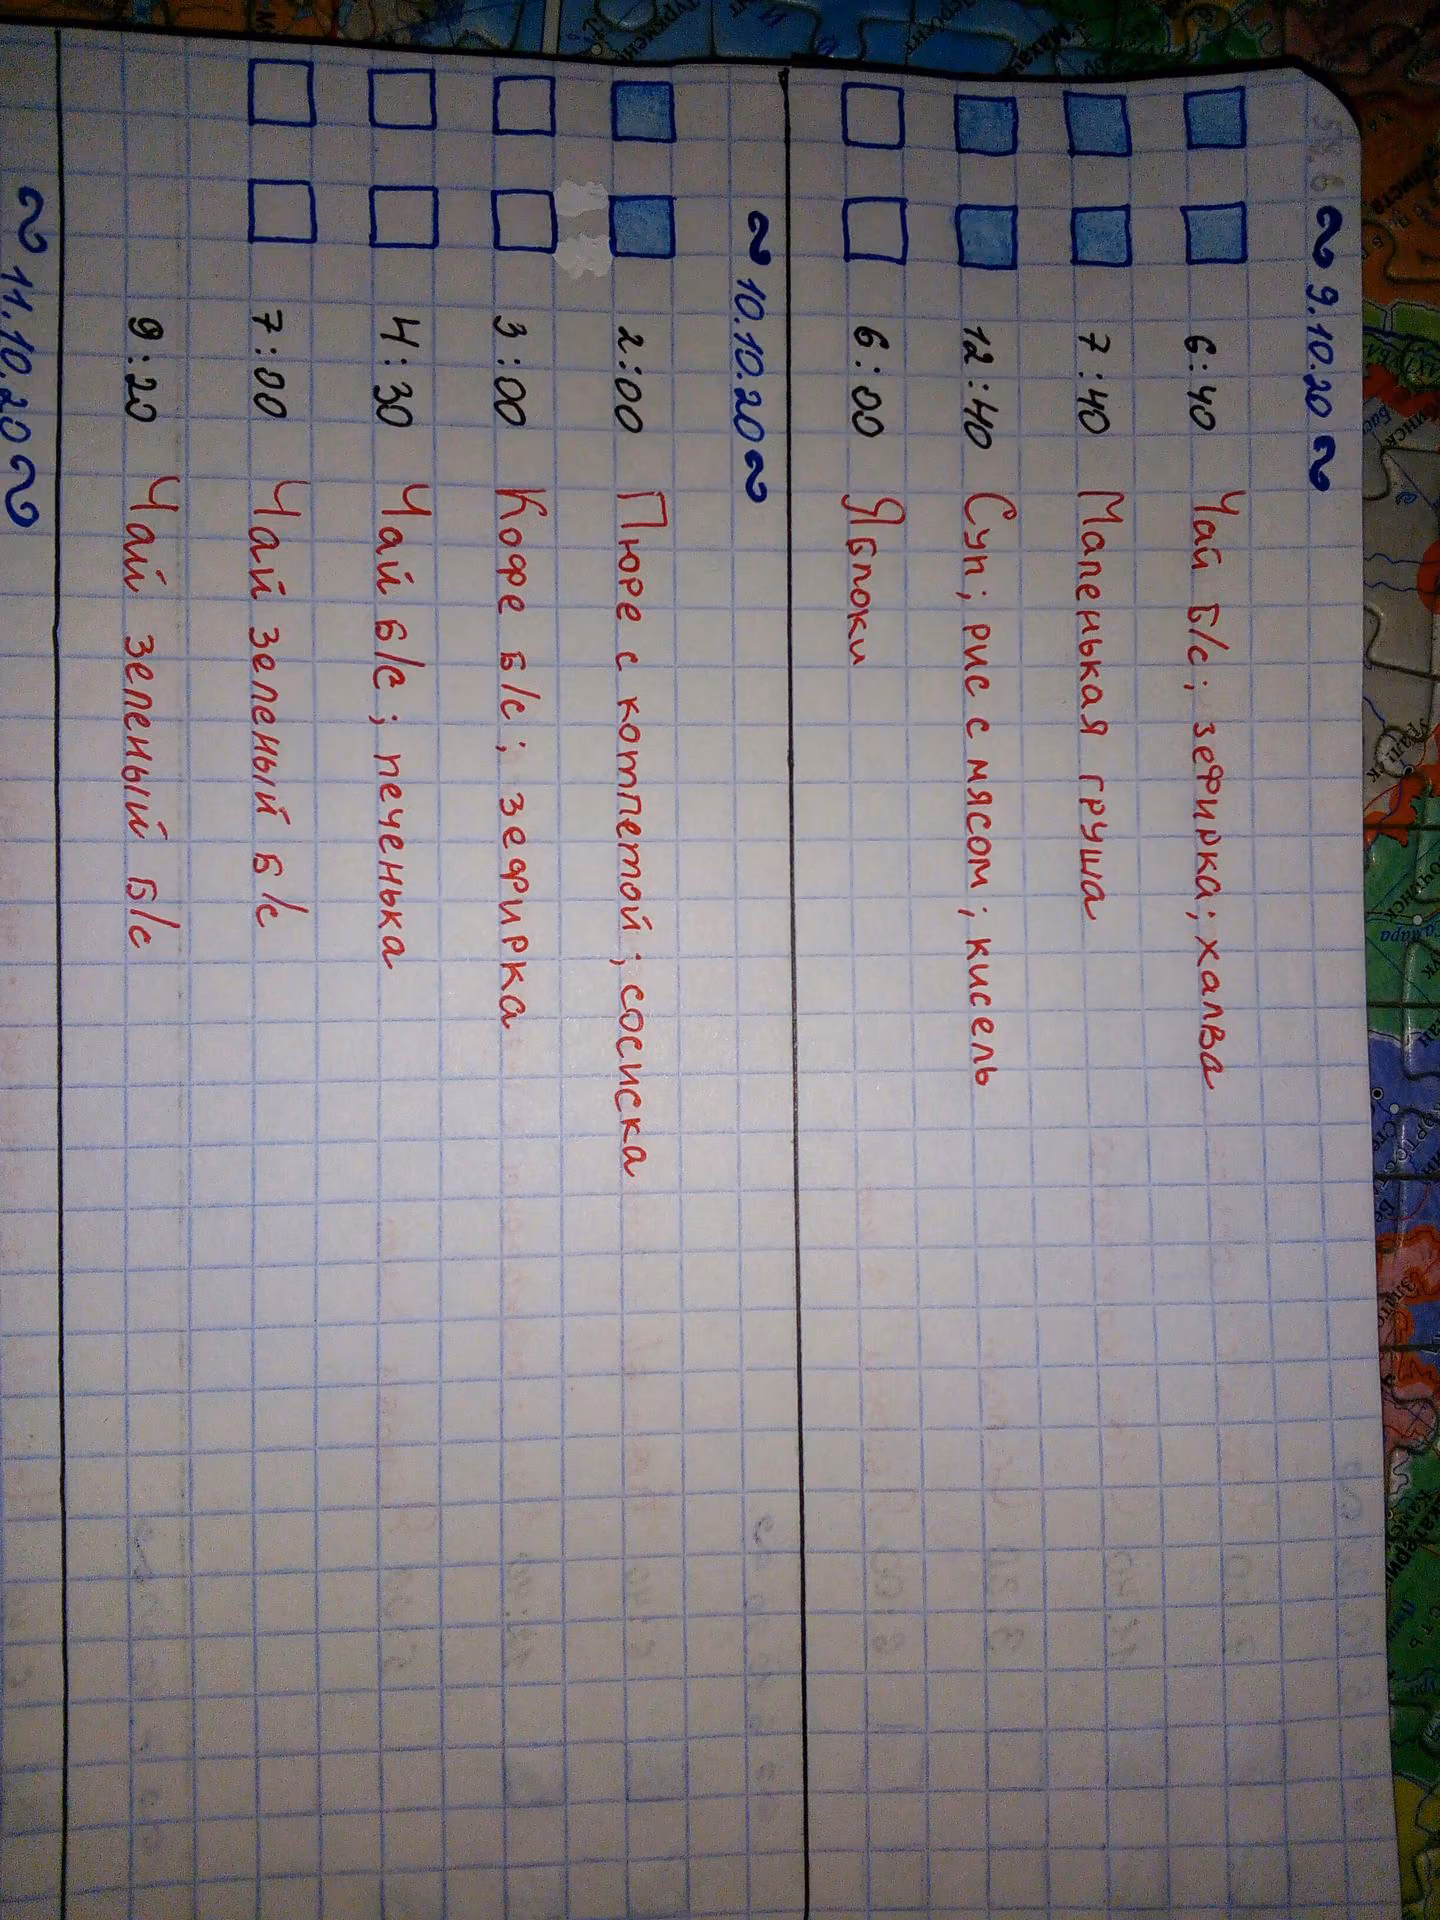 ~ 9.10.20 ~
6:40 Чай б/с; зефирка; халва
7:40 Маленькая груша
12:40 Суп; рис с мясом; кисель
6:00 Яблоки
~ 10.10.20 ~
2:00 Пюре с котлетой; сосиска
3:00 Кофе б/с; зефирка
4:30 Чай б/с; печенька
7:00 Чай зеленый б/с
9:20 Чай зеленый б/с
~ 11.10.20 ~